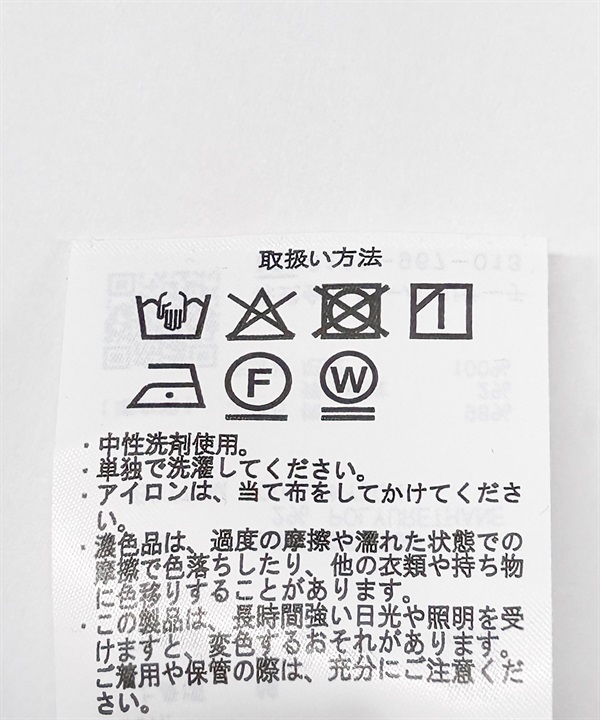 取扱い方法
F W
・中性洗剤使用。
・単独で洗濯してください。
・アイロンは、当て布をしてかけてくださ
い。
・濃色品は、過度の摩擦や濡れた状態での
摩擦で色落ちしたり、他の衣類や持ち物
に色移りすることがあります。
・この製品は、長時間強い日光や照明を受
けますと、変色するおそれがあります。
ご着用や保管の際は、充分にご注意くだ
さい。